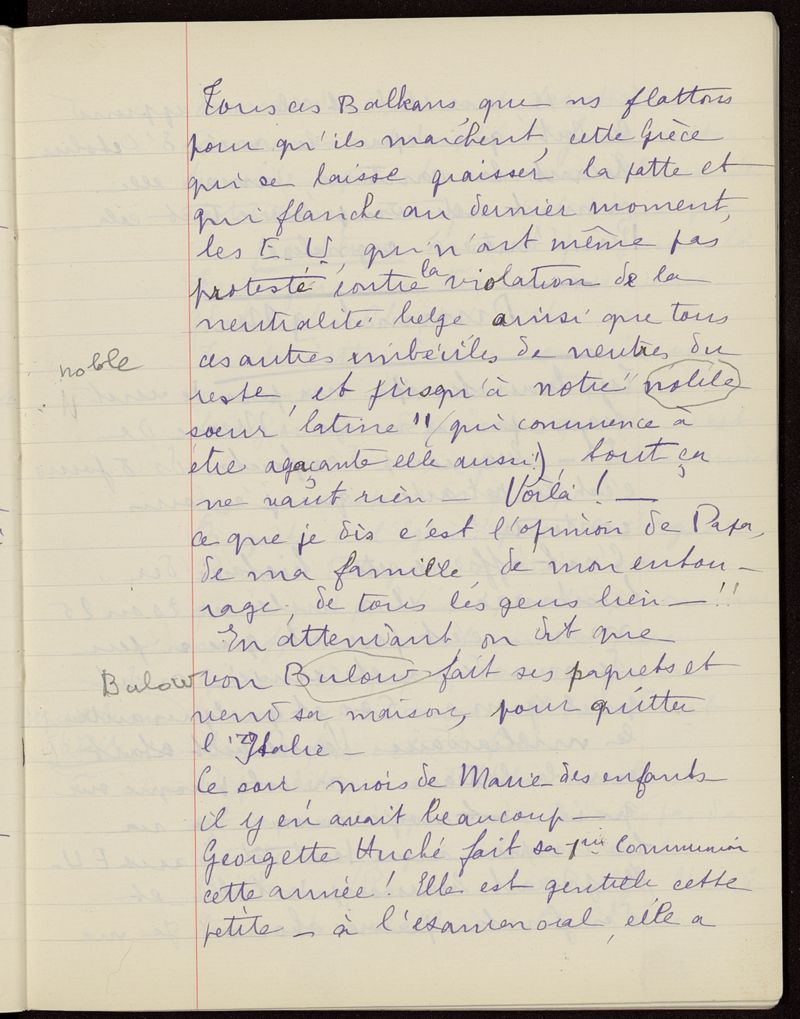 Tous ces Balkans, que ns flattons
pour qu'ils marchent, cette Grèce
qui se laisse graisser la patte et
qui flanche au dernier moment,
les E. U. qui n'ont même pas
protesté contre la violation de la
neutralité belge ainsi que tous
ces autres imbéciles de neutres du
noble
reste, et jusqu'à notre "nobile
soeur latine" (qui commence à
être agaçante elle aussi!), tout ça
ne vaut rien - Voilà! -
ce que je dis c'est l'opinion de Papa,
de ma famille, de mon entou-
rage, de tous les gens bien - !!
En attendant, on dit que
Bulow
von Bulow fait ses paquets et
vend sa maison, pour quitter
l'Italie -
Ce soir mois de Marie des enfants
il y en avait beaucoup -
Georgette Huché fait sa 1ère Communion
cette année! Elle est gentille cette
petite - à l'examen oral, elle a